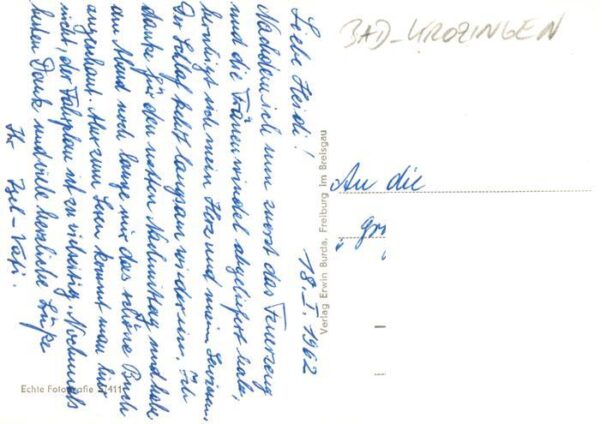 BAD-KROZINGEN
Liebe Heidi! 18.I.1962
Nachdem ich nun zuerst das Feuerzeug
und die abgeliefert habe,
beruhigt sich mein Herz und mein Gewissen.
Der Schlaf fehlt langsam wiederum. Ich
danke für den netten Nachmittag und habe
am Abend noch lange mir das schöne Buch
angeschaut. Aber zum Lesen kommt man hier
nicht, der Fahrplan ist zu vielseitig. Nochmals
Dank und viele herzliche Grüße
Ihr Igel-Vati.
An die
Verlag Erwin Burda, Freiburg im Breisgau
Echte Fotografie